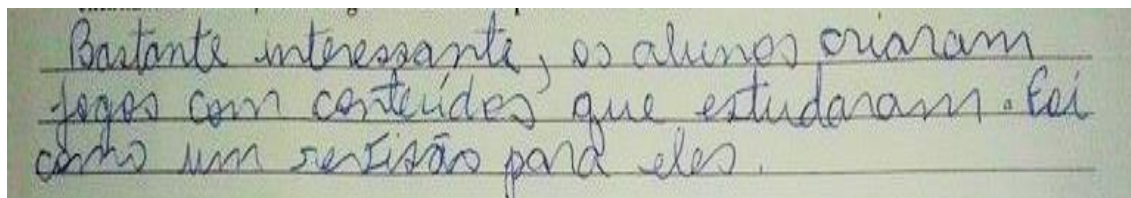 Bastante interessante, os alunos criaram
jogos com conteúdos que estudaram. Foi
como um revisão para eles.